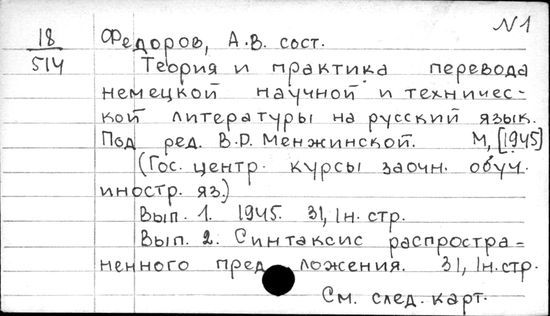 N1
18
514
Федоров, А.В. сост.
Теория и практика перевода
немецкой научной и техничес-
кой литературы на русский язык.
Под ред. В.Д. Менжинской. М, [1945]
(Гос. центр. курсы заочн. обуч.
иностр. яз.)
Вып. 1. 1945. 31, 1н. стр.
Вып. 2. Синтаксис распростра-
ненного предложения. 31, 1н. стр.
См. след. карт.